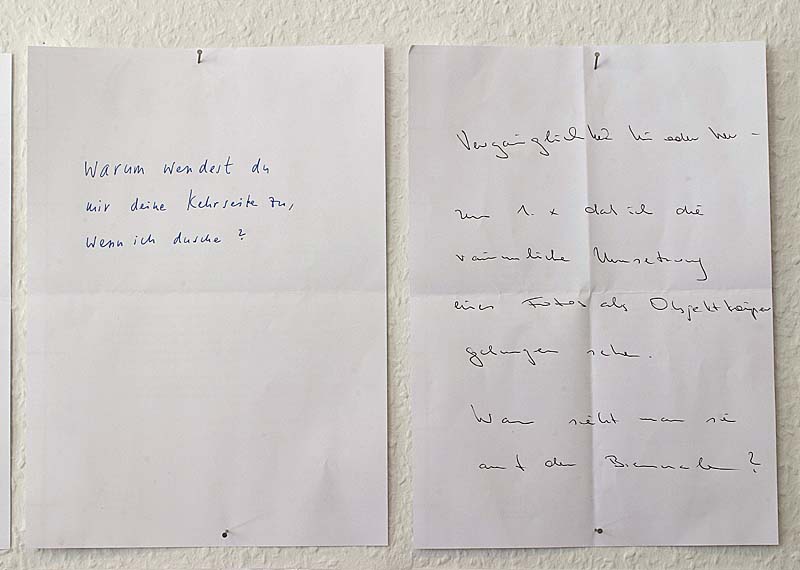 Warum wendest du
mir deine Kehrseite zu,
wenn ich dusche?
Vergänglichkeit hin oder her -
zum 1. x daß ich die
räumliche Umsetzung
eines Fotos als Objektkörper
gelungen sehe.
Wann sieht man sie
auf der Biennale?